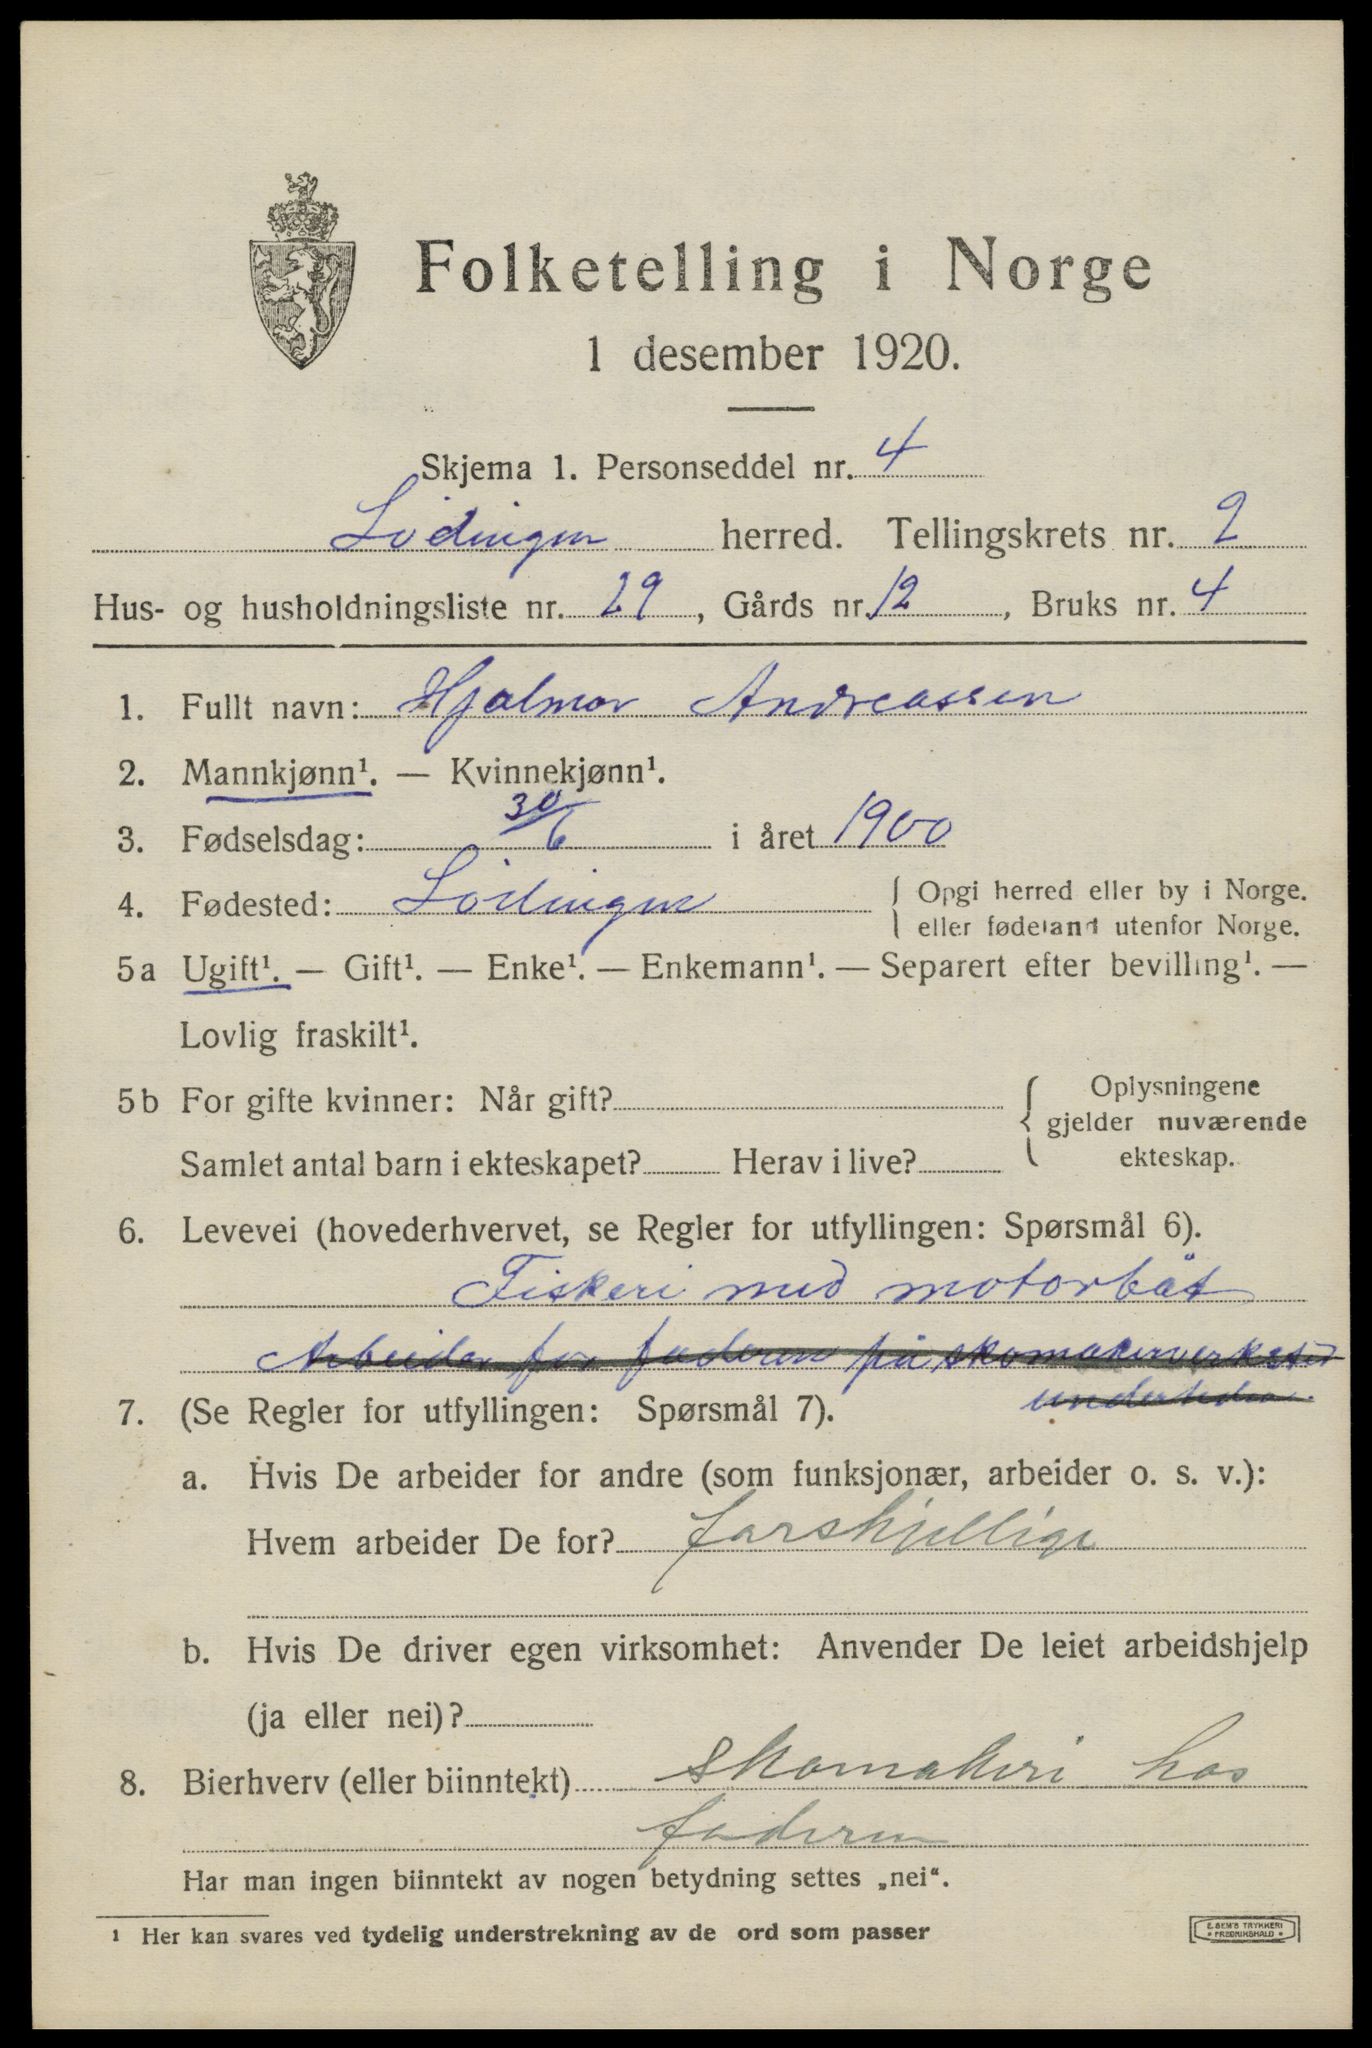 Folketelling i Norge
1 desember 1920.
Skjema 1. Personseddel nr. 4
Lødingen herred. Tellingskrets nr. 2
Hus- og husholdningsliste nr. 29, Gårds nr. 12, Bruks nr. 4
1. Fullt navn: Hjalmar Andreassen
2. Mannkjønn¹. — Kvinnekjønn¹.
3. Fødselsdag: 30/6 i året 1900
4. Fødested: Lødingen { Opgi herred eller by i Norge.
eller fødeland utenfor Norge.
5a Ugift¹. — Gift¹. — Enke¹. — Enkemann¹. — Separert efter bevilling¹. —
Lovlig fraskilt¹.
5b For gifte kvinner: Når gift? { Oplysningene
gjelder nuværende
Samlet antal barn i ekteskapet? Herav i live? ekteskap.
6. Levevei (hovederhvervet, se Regler for utfyllingen: Spørsmål 6).
Fiskeri med motorbåt
Arbeider for faderen på skomakerverksted
7. (Se Regler for utfyllingen: Spørsmål 7).
a. Hvis De arbeider for andre (som funksjonær, arbeider o. s. v.):
Hvem arbeider De for? forskjellige
b. Hvis De driver egen virksomhet: Anvender De leiet arbeidshjelp
(ja eller nei)?
8. Bierhverv (eller biinntekt) skomakeri hos
faderen
Har man ingen biinntekt av nogen betydning settes „nei“.
¹ Her kan svares ved tydelig understrekning av de ord som passer
E. SEM'S TRYKKERI
FREDRIKSHALD